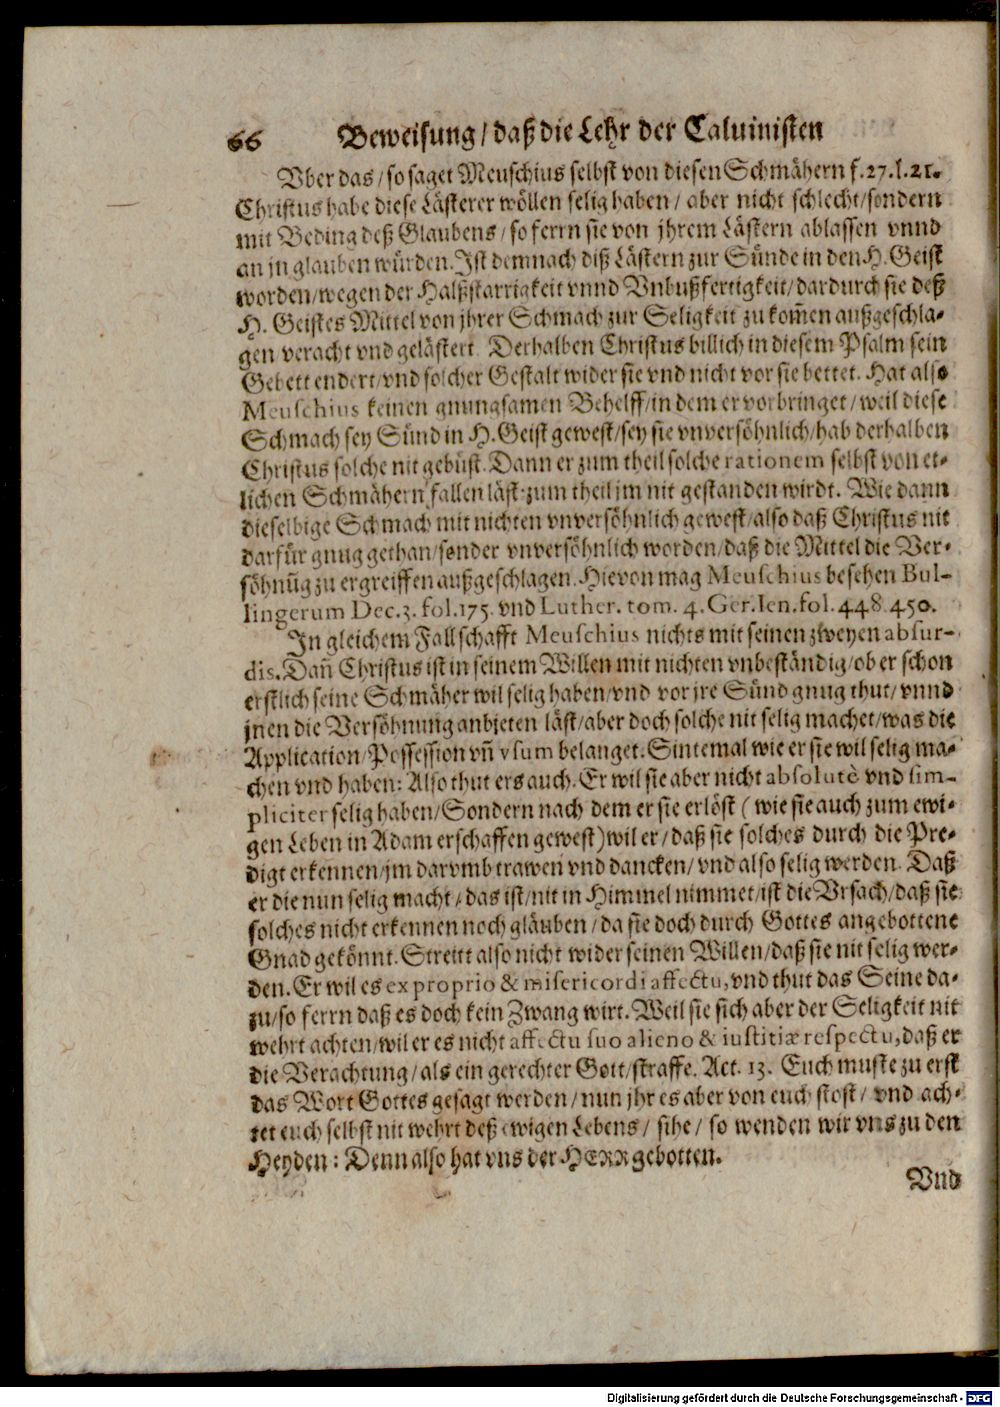 66 Beweisung / daß die Lehr der Caluinisten
Vber das / so saget Meuschius selbst von diesen Schmähern f. 27. l. 21.
Christus habe diese Lästerer wöllen selig haben / aber nicht schlecht / sondern
mit Beding deß Glaubens / so ferrn sie von jhrem Lästern ablassen vnnd
an jn glauben würden. Ist demnach diß Lästern zur Sünde in den H. Geist
worden / wegen der Halßstarrigkeit vnnd Vnbußfertigkeit / dardurch sie deß
H. Geistes Mittel von jhrer Schmach zur Seligkeit zu kom̃en außgeschla-
gen veracht vnd gelästert. Derhalben Christus billich in diesem Psalm sein
Gebett endert / vnd solcher Gestalt wider sie vnd nicht vor sie bettet. Hat also
Meuschius keinen gnungsamen Behelff / in dem er vorbringet / weil diese
Schmach sey Sünd in H. Geist gewest / sey sie vnversöhnlich / hab derhalben
Christus solche nit gebüst. Dann er zum theil solche rationem selbst von et-
lichen Schmähern fallen läst: zum theil jm nit gestanden wirdt. Wie dann
dieselbige Schmach mit nichten vnversöhnlich gewest / also daß Christus nit
darfür gnug gethan / sonder vnversöhnlich worden / daß die Mittel die Ver-
söhnũg zu ergreiffen außgeschlagen. Hievon mag Meuschius besehen Bul-
lingerum Dec. 3. fol. 175. vnd Luther. tom. 4. Ger. Ien. fol. 448. 450.
In gleichem Fall schafft Meuschius nichts mit seinen zweyen absur-
dis. Dañ Christus ist in seinem Willen mit nichten vnbeständig / ob er schon
erstlich seine Schmäher wil selig haben / vnd vor jre Sünd gnug thut / vnnd
jnen die Versöhnung anbieten läst / aber doch solche nit selig machet / was die
Application / Possession vñ vsum belanget. Sintemal wie er sie wil selig ma-
chen vnd haben: Also thut ers auch. Er wil sie aber nicht absolutè vnd sim-
pliciter selig haben / Sondern nach dem er sie erlöst ( wie sie auch zum ewi-
gen Leben in Adam erschaffen gewest ) wil er / daß sie solches durch die Pre-
digt erkennen / jm darvmb trawen vnd dancken / vnd also selig werden. Daß
er die nun selig macht / das ist / nit in Himmel nimmet / ist die Vrsach / daß sie
solches nicht erkennen noch gläuben / da sie doch durch Gottes angebottene
Gnad gekönnt. Streitt also nicht wider seinen Willen / daß sie nit selig wer-
den. Er wil es ex proprio & misericordi affectu, vnd thut das Seine da-
zu / so ferrn daß es doch kein Zwang wirt. Weil sie sich aber der Seligkeit nit
wehrt achten / wil er es nicht affectu suo alieno & iustitiæ respectu, daß er
die Verachtung / als ein gerechter Gott / straffe. Act. 13. Euch muste zu erst
das Wort Gottes gesagt werden / nun jhr es aber von euch stost / vnd ach-
tet euch selbst nit wehrt deß ewigen Lebens / sihe / so wenden wir vns zu den
Heyden: Denn also hat vns der HERR gebotten.
Vnd
Digitalisierung gefördert durch die Deutsche Forschungsgemeinschaft - DFG